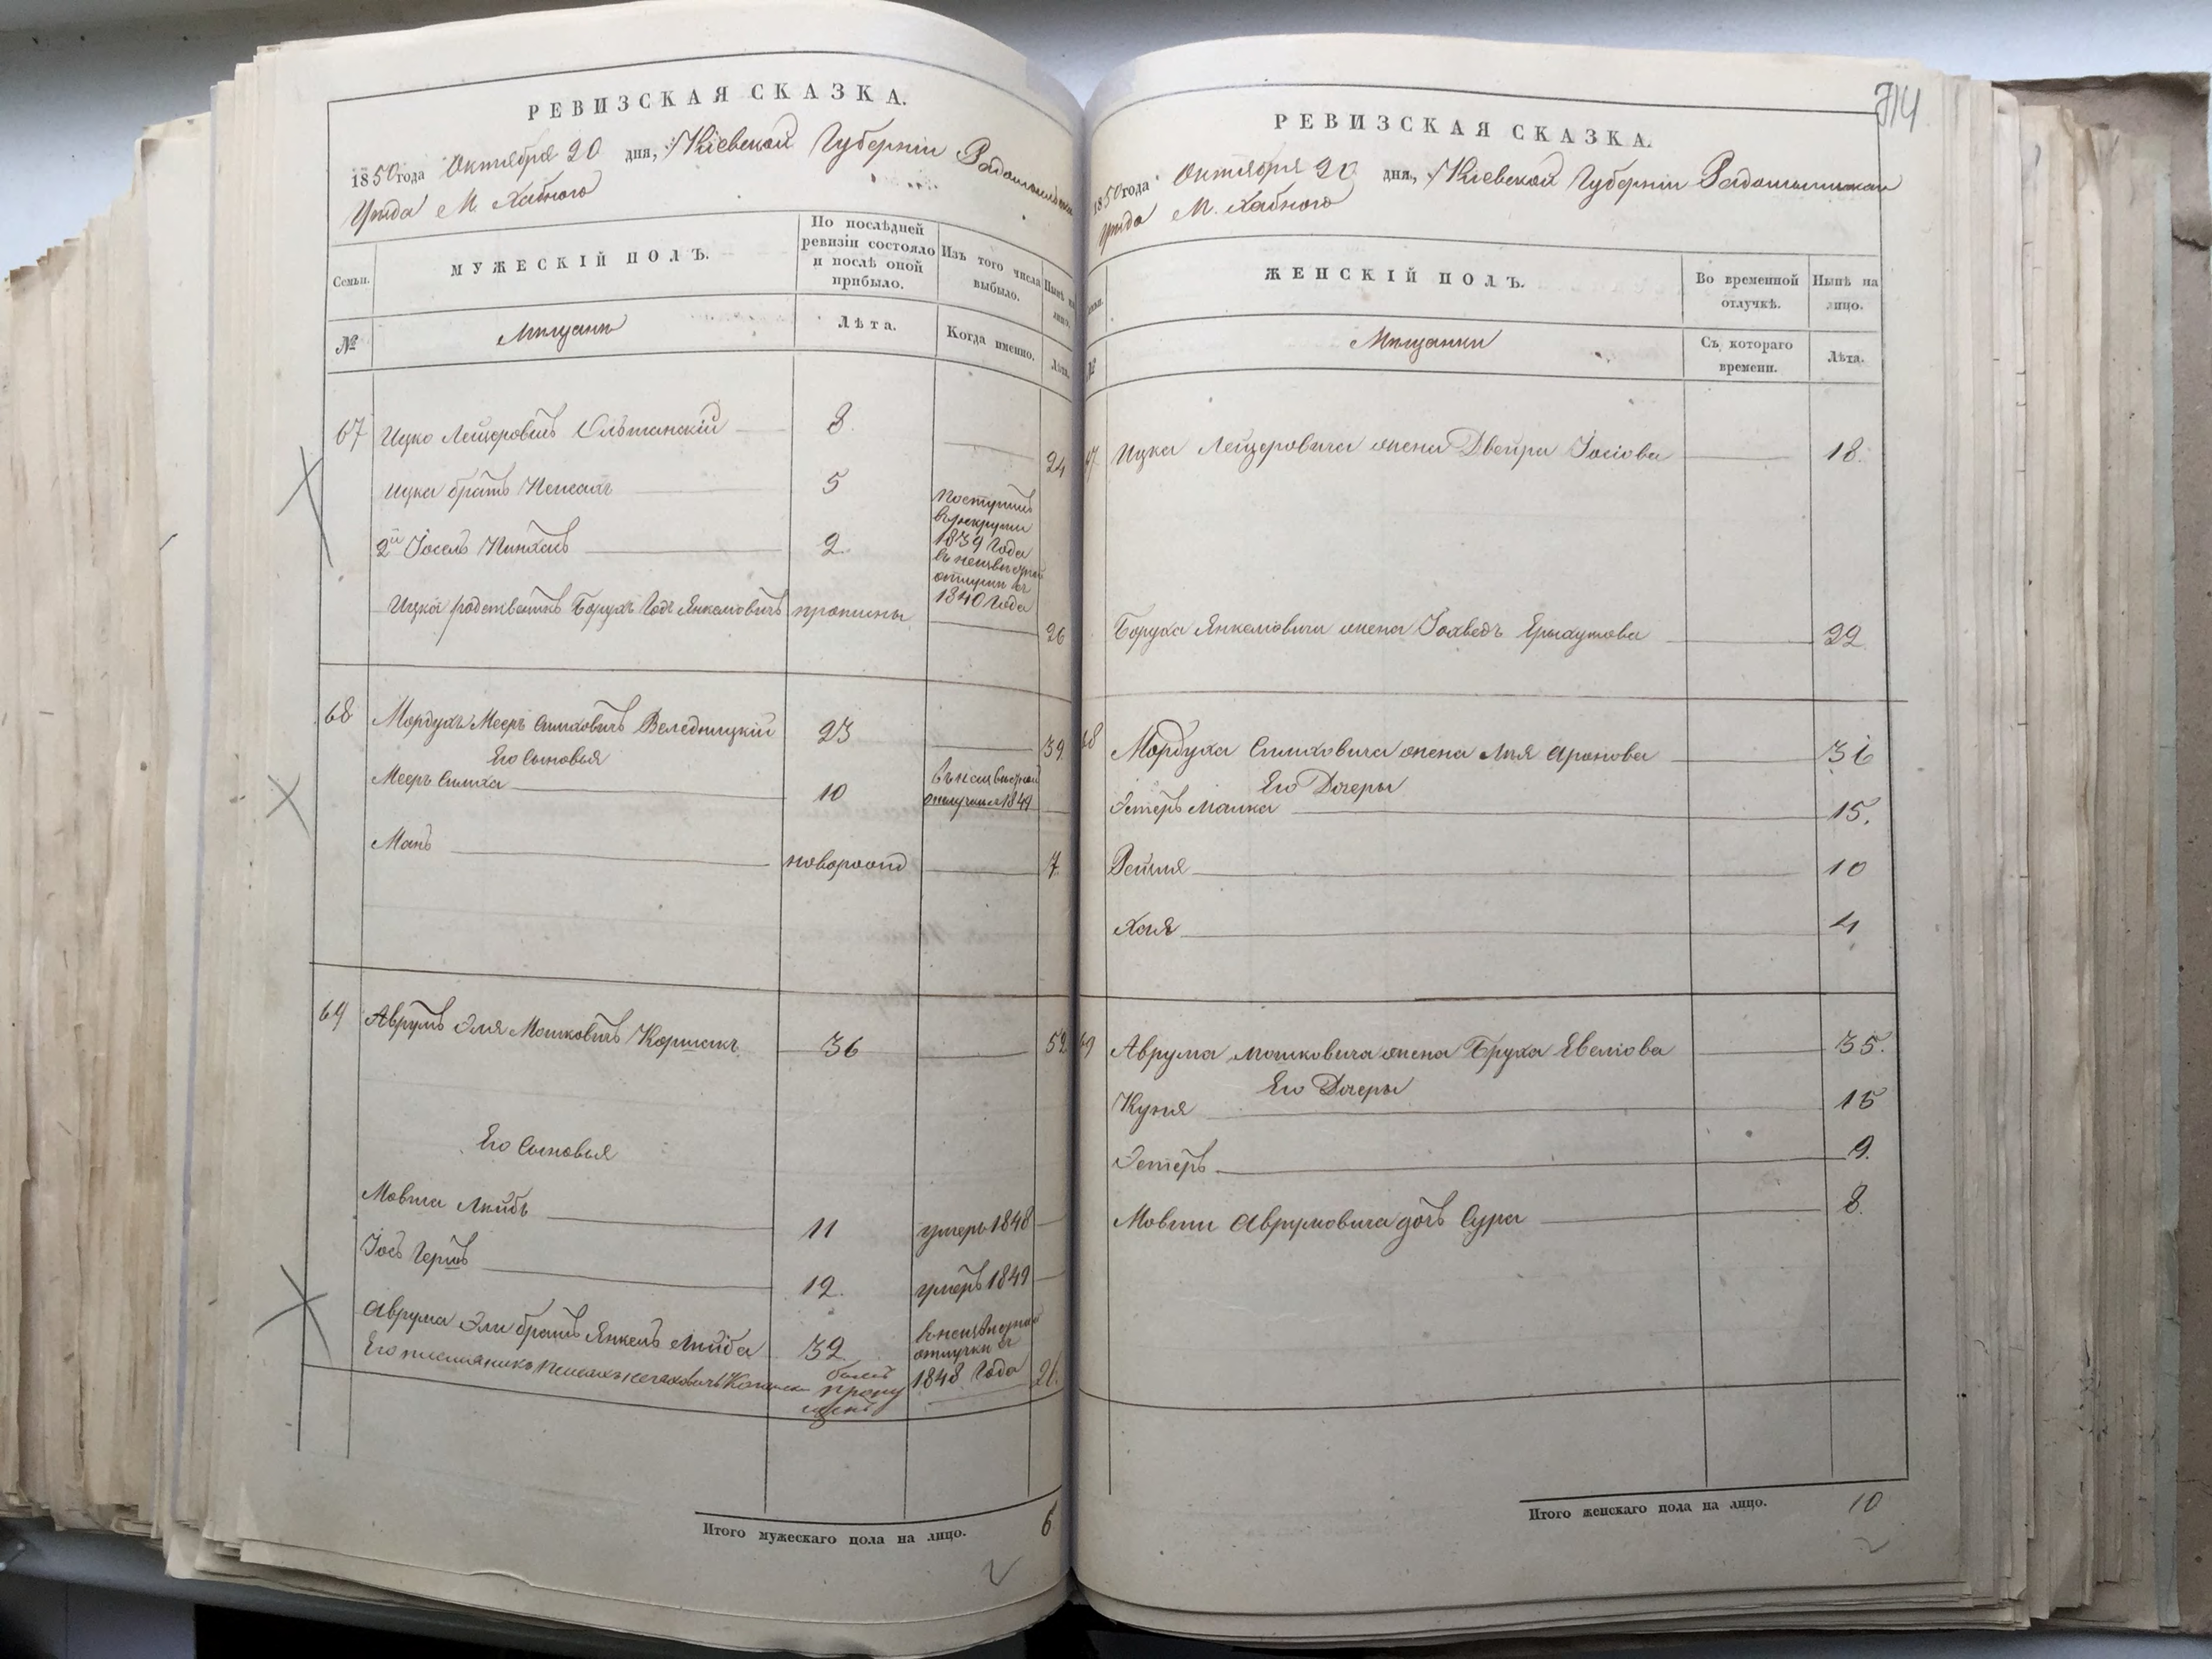 РЕВИЗСКАЯ СКАЗКА.
1850 года Октября 20 дня, Кіевской Губерніи Радомысльскаго
Уѣзда М. Хабного
Семьи.
МУЖЕСКІЙ ПОЛЪ.
По послѣдней ревизіи состояло и послѣ оной прибыло.
Изъ того числа выбыло.
Нынѣ на лицо.
№
Мещане
Лѣта.
Когда именно.
Лѣта.
67 Ицко Лейзеровичъ Ольшанскій 8 24
Ицка братъ Пейсахъ 5 Поступилъ
в рекруты
1839 Года
2й Іосель Пинхасъ 2. въ неизвѣстной
отлучкѣ съ
1840 Года
Ицка родственикъ Борухъ Годъ Янкелювичъ пропис. 26
68 Мордухъ Мееръ Симховичъ Веледницкій 23 39
Его сыновья
Мееръ Симха 10 въ неизвѣстной
отлучкѣ 1849
Манъ новорожд 7.
69 Аврумъ Эля Мошковичъ Коршакъ 36 52
Его Сыновья
Мовша Лейбъ 11 умеръ 1848
Іось Гершъ 12. умеръ 1849
Аврума Эли братъ Янкель Лейба 32 в неизвѣстной
отлучкѣ съ
1848 Года
Его племяникъ Пейсахъ былъ
пропу
щенъ 26.
Итого мужескаго пола на лицо. 6
714
РЕВИЗСКАЯ СКАЗКА.
1850 года Октября 20 дня, Кіевской Губерніи Радомысльскаго
Уѣзда М. Хабного
Семьи.
ЖЕНСКІЙ ПОЛЪ.
Во временной отлучкѣ.
Нынѣ на лицо.
№
Мещанки
Съ котораго времени.
Лѣта.
67 Ицка Лейзеровича жена Двейра Іосіова 18.
Боруха Янкелювича жена Іохведъ 22
68 Мордуха Симховича жена Лея Аронова 36
Его Дочеры
Эстеръ Малка 15.
Рейзля 10
Хая 4
69 Аврума Мошковича жена Бруха Евелова 35.
Его Дочеры
Куня 15
Эстеръ 9.
Мовши Аврумовича дочь Сура 8.
Итого женскаго пола на лицо. 10